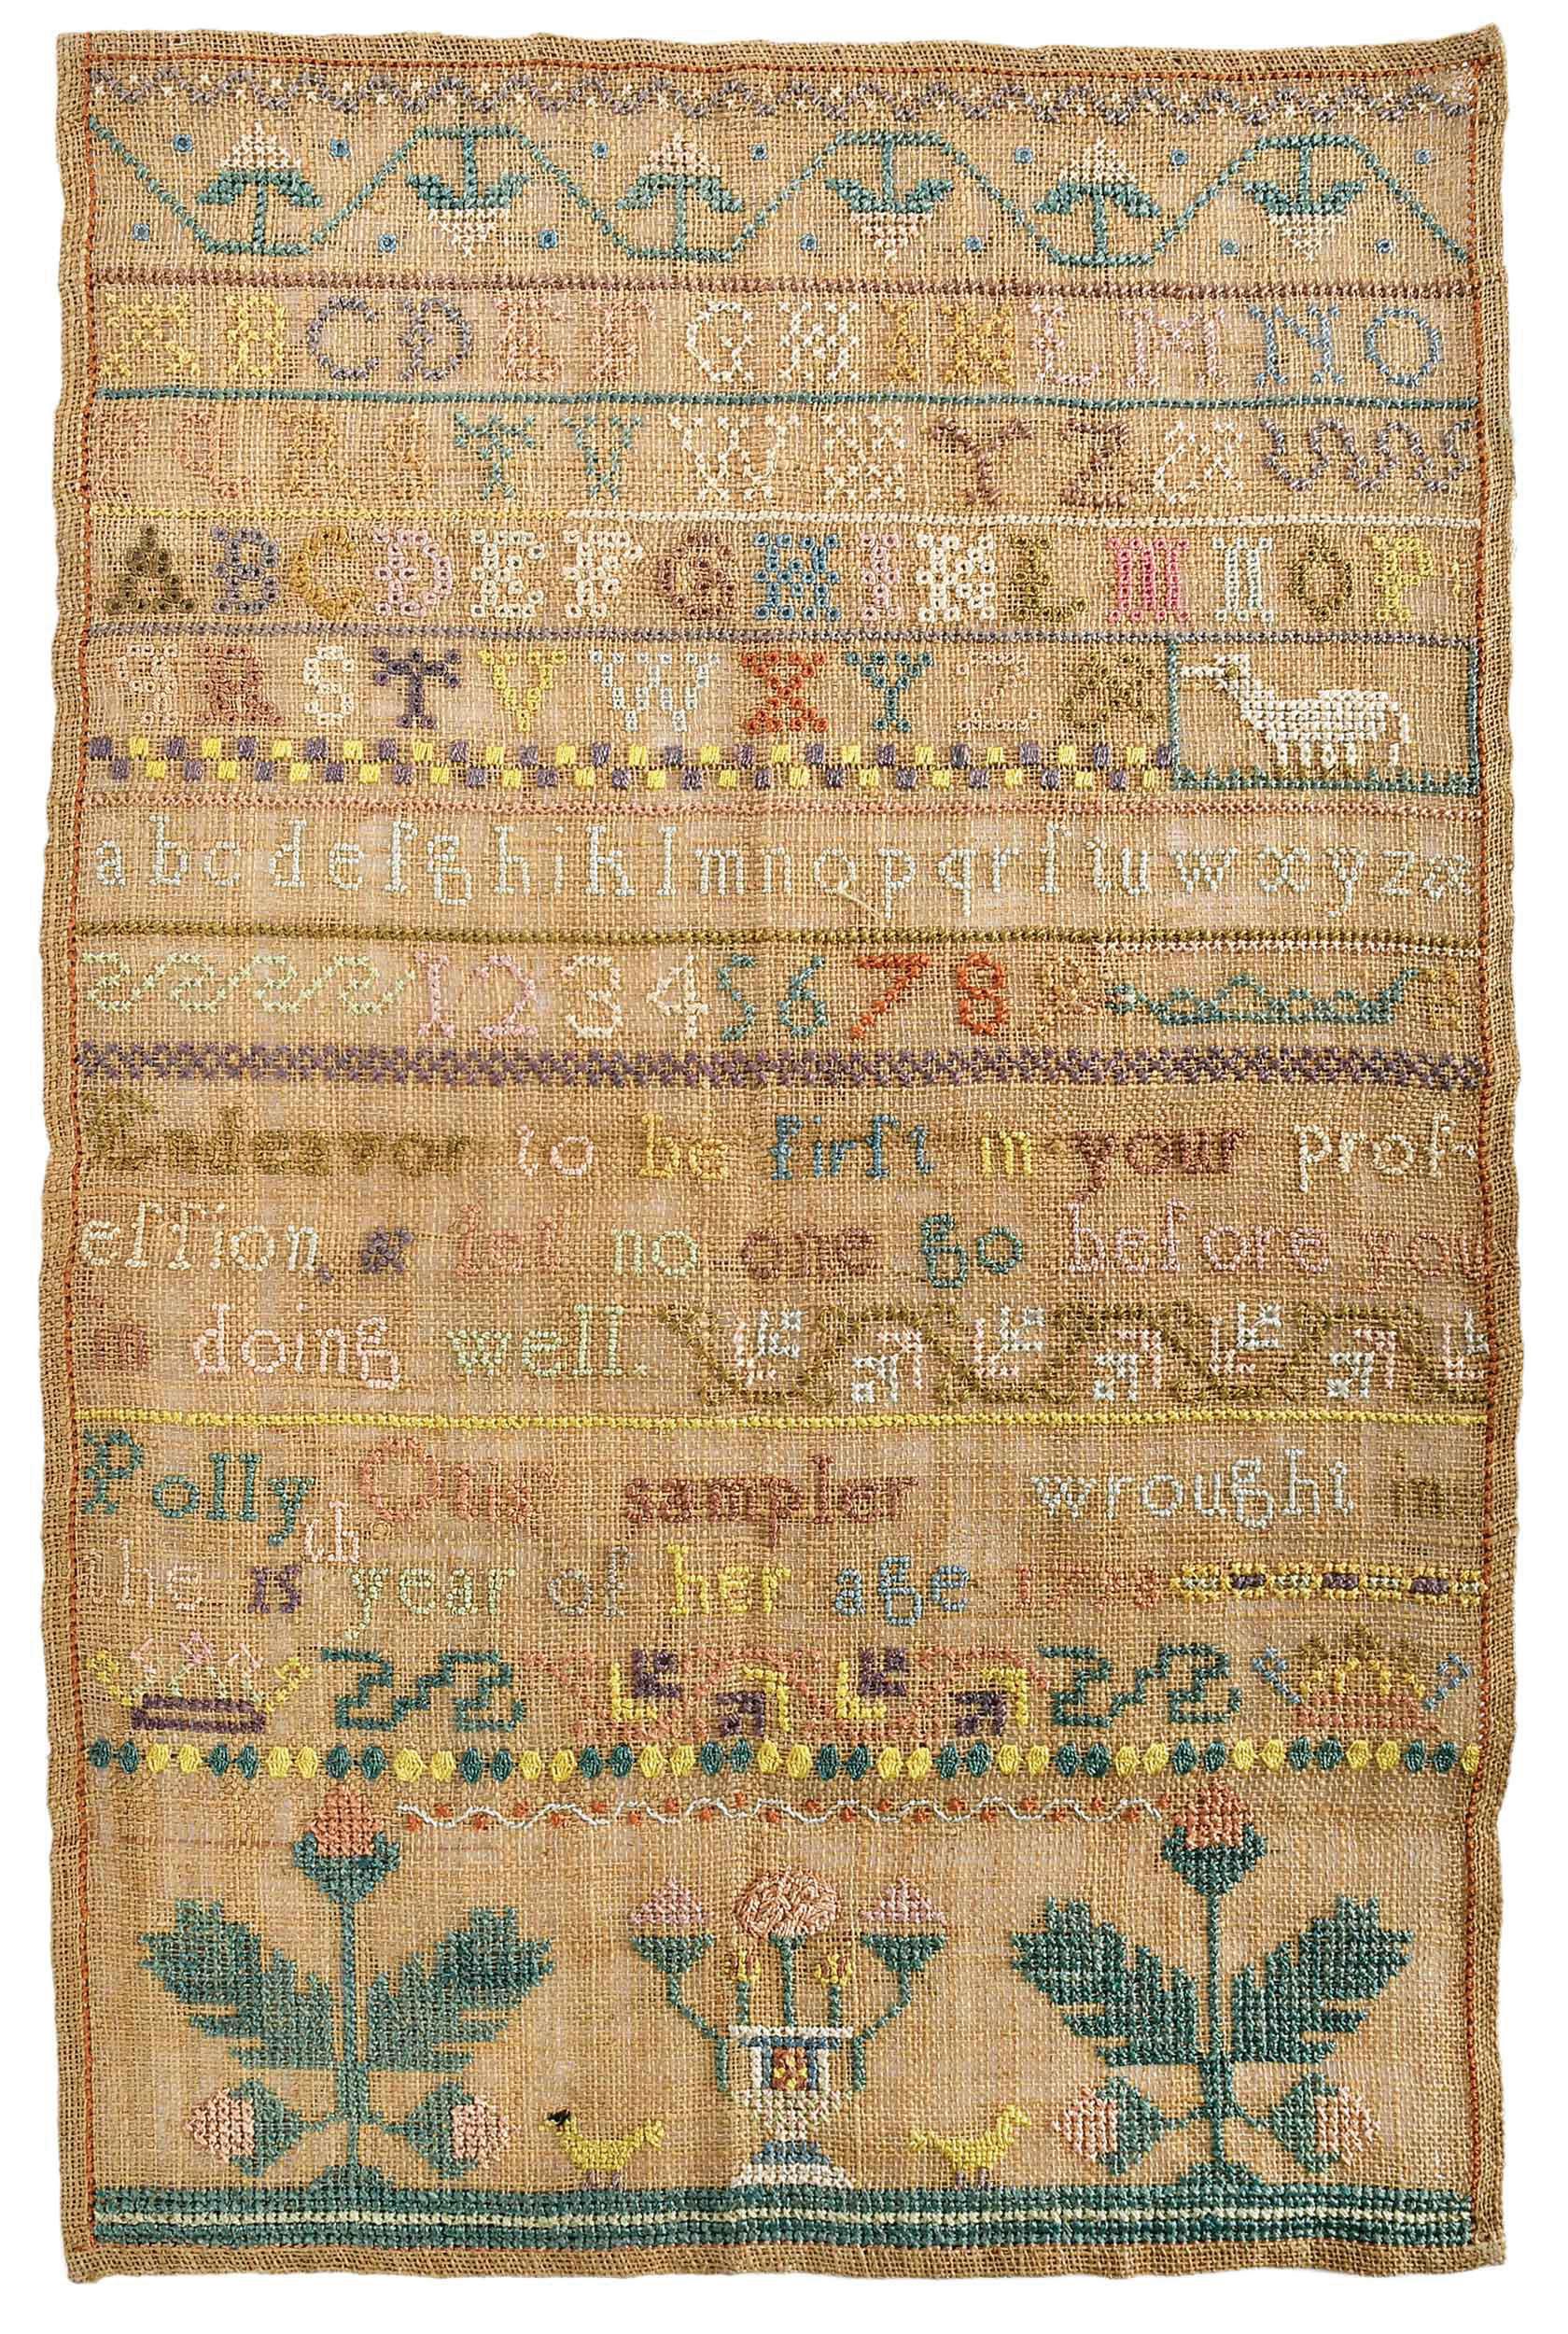 A B C D E F G H I K L M N O
P Q R S T V W X Y Z &
A B C D E F G H I K L M N O P
Q R S T V W X Y Z &
a b c d e f g h i k l m n o p q r ſ t u w x y z &
1 2 3 4 5 6 7 8
Endeavor to be firſt in your prof
eſſion, & let no one go before you
in doing well.
Polly Otis sampler wrought in
the 15 th year of her age